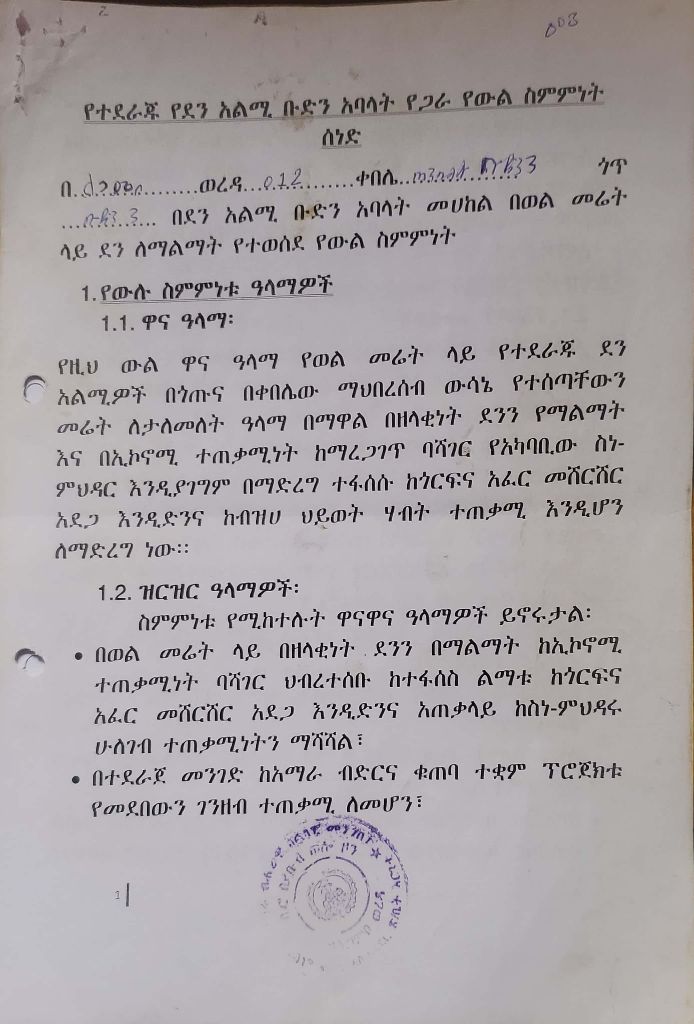 003
የተደራጁ የደን አልሚ ቡድን አባላት የጋራ የውል ስምምነት
ሰነድ
በ.............ወረዳ...012.........ቀበሌ............... ጎጥ
............ በደን አልሚ ቡድን አባላት መሀከል በወል መሬት
ላይ ደን ለማልማት የተወሰደ የውል ስምምነት
1. የውሉ ስምምነቱ ዓላማዎች
1.1. ዋና ዓላማ፡
የዚህ ውል ዋና ዓላማ የወል መሬት ላይ የተደራጁ ደን
አልሚዎች በጎጡና በቀበሌው ማህበረሰብ ውሳኔ የተሰጣቸውን
መሬት ለታለመለት ዓላማ በማዋል በዘላቂነት ደንን የማልማት
እና በኢኮኖሚ ተጠቃሚነት ከማረጋገጥ ባሻገር የአካባቢው ስነ-
ምህዳር እንዲያገግም በማድረግ ተፋሰሱ ከጎርፍና አፈር መሸርሸር
አደጋ እንዲድንና ከብዝሀ ህይወት ሃብት ተጠቃሚ እንዲሆን
ለማድረግ ነው።
1.2. ዝርዝር ዓላማዎች፡
ስምምነቱ የሚከተሉት ዋናዋና ዓላማዎች ይኖሩታል፡
• በወል መሬት ላይ በዘላቂነት ደንን በማልማት ከኢኮኖሚ
ተጠቃሚነት ባሻገር ህብረተሰቡ ከተፋሰስ ልማቱ ከጎርፍና
አፈር መሸርሸር አደጋ እንዲድንና አጠቃላይ ከስነ-ምህዳሩ
ሁለገብ ተጠቃሚነትን ማሻሻል፣
• በተደራጀ መንገድ ከአማራ ብድርና ቁጠባ ተቋም ፕሮጀክቱ
የመደበውን ገንዘብ ተጠቃሚ ለመሆን፣
1